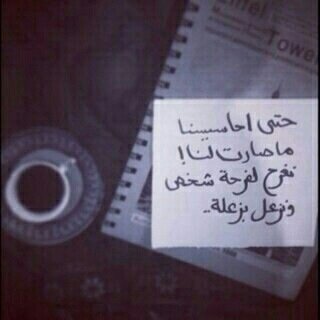 Eiffel
Tower
حتى احاسيسنا
ما صارت لنا!
نفرح لفرحة شخص
ونزعل بزعلة..